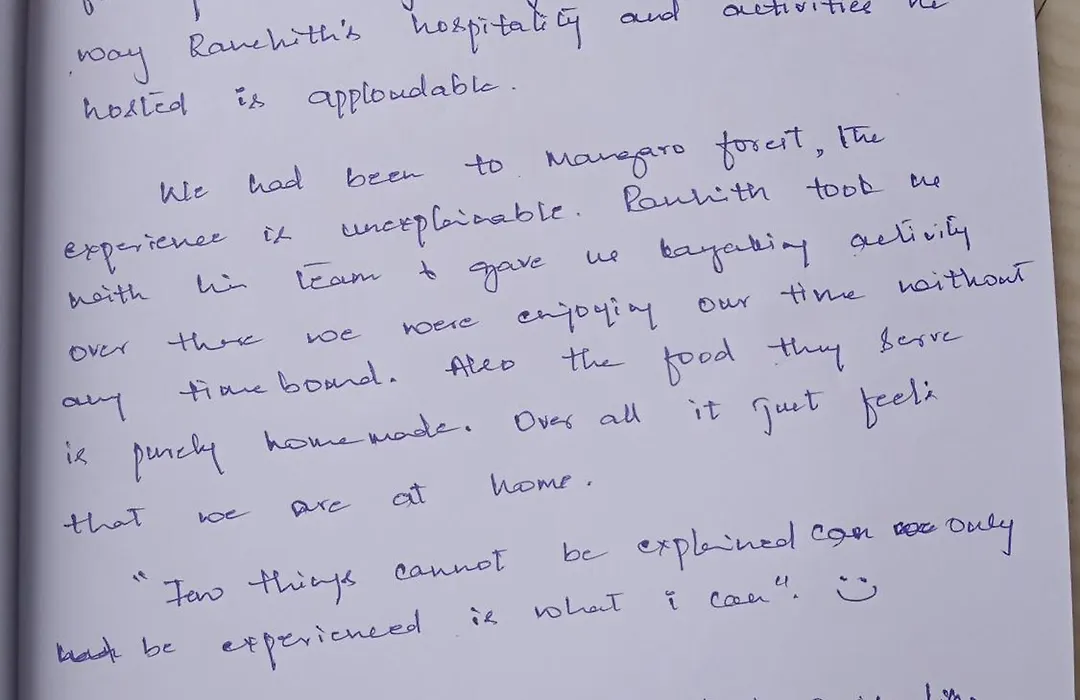 way Ranchith's hospitality and activities he
hosted is apploudable.
We had been to Mangaro forest, the
experience is unexplainable. Ranhith took us
with his team & gave us kayaking activity
over there we were enjoying our time without
any time board. Also the food they serve
is purely homemade. Over all it just feels
that we are at home.
"Few things cannot be explained can only
be experienced is what i can". :)